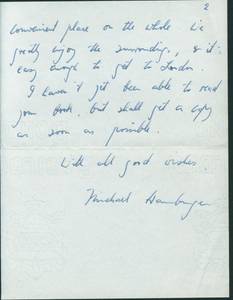 2
convenient place on the whole. We
greatly enjoy the surroundings, & it's
easy enough to get to London.
I haven't yet been able to read
your book, but shall get a copy
as soon as possible.
With all good wishes.
Michael Hamburger